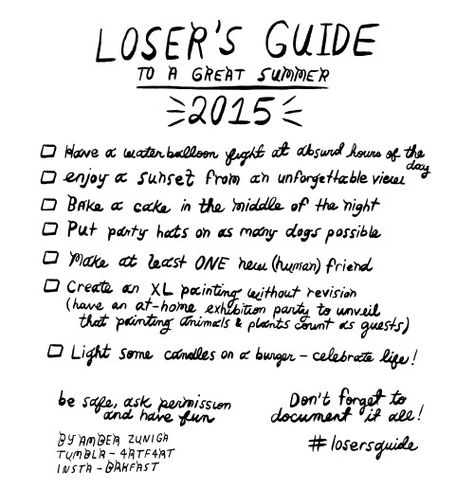 LOSER'S GUIDE
TO A GREAT SUMMER
2015
Have a waterballoon fight at absurd hours of the day
enjoy a sunset from an unforgettable view
Bake a cake in the middle of the night
Put party hats on as many dogs possible
Make at least ONE new (human) friend
Create an XL painting without revision
(have an at-home exhibition party to unveil
that painting animals & plants count as guests)
Light some candles on a burger - celebrate life!
be safe, ask permission
and have fun
Don't forget to
document it all!
#losersguide
BY AMBER ZUNIGA
TUMBLR - 4ATF4AT
INSTA - BAKFAST